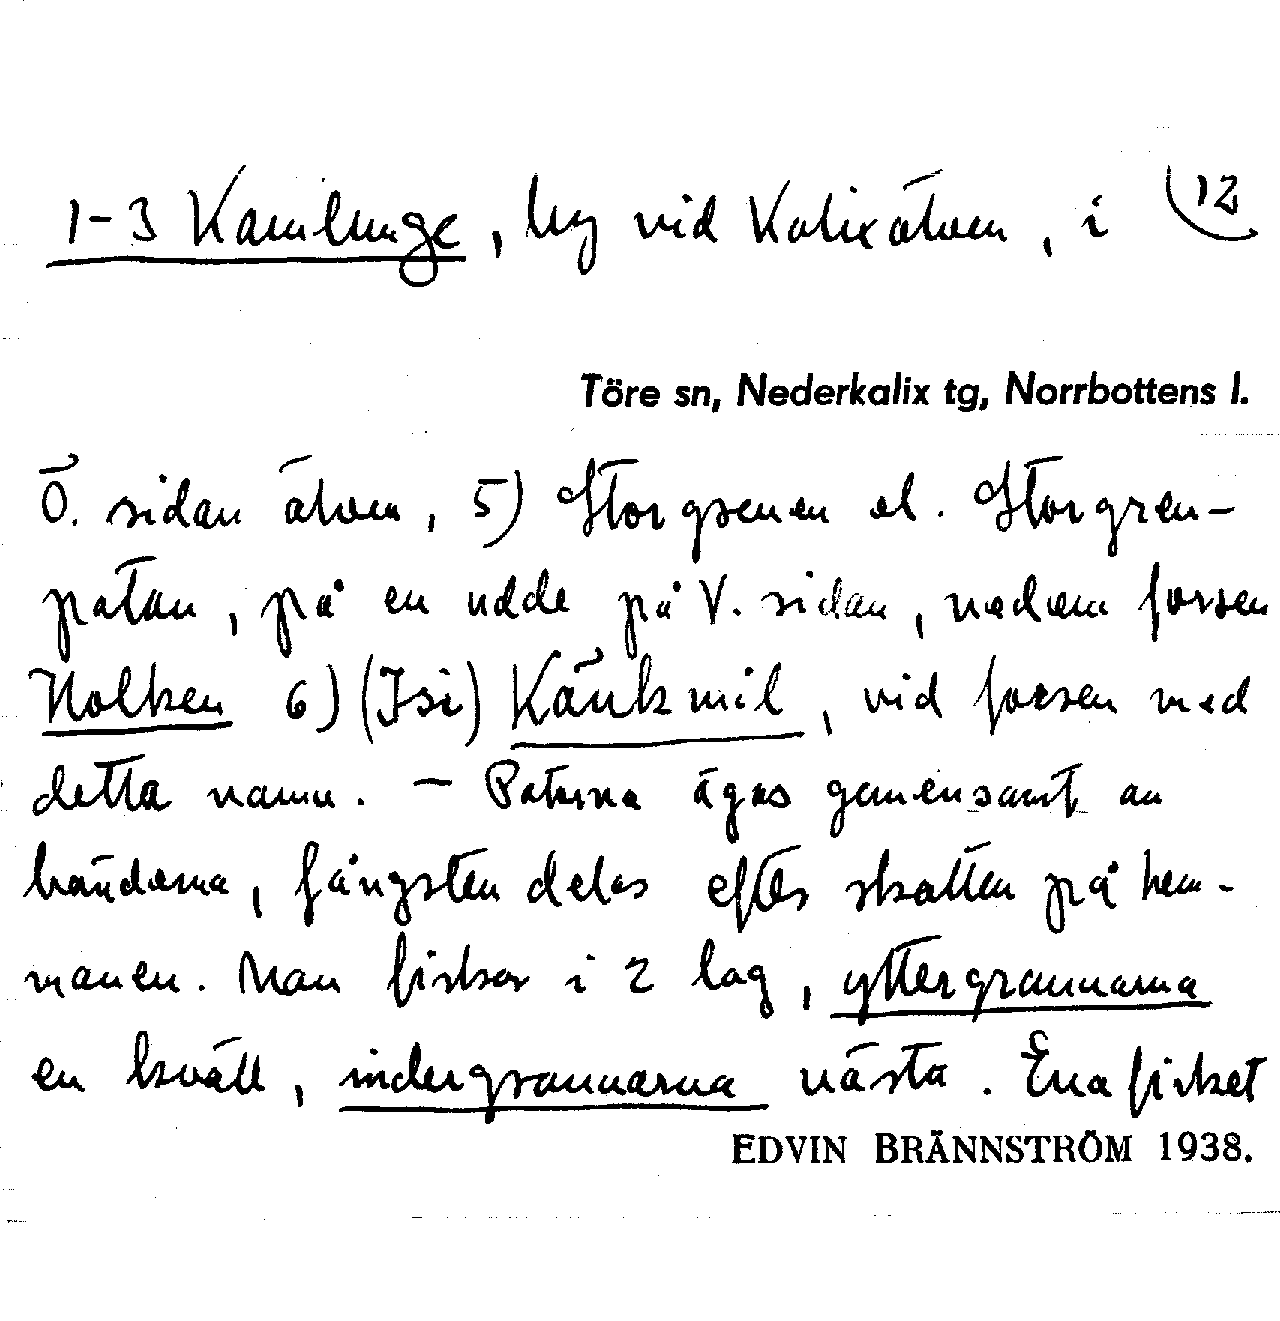 1-3 Kamlunge, by vid Kalixälven, i 12
Töre sn, Nederkalix tg, Norrbottens l.
Ö. sidan älven, 5) Storgrenen el. Storgren-
patan, på en udde på V. sidan, nedom forsen
Holken 6) (Isi) Känkmil, vid forsen med
detta namn. – Patorna ägas gemensamt av
bönderna, fångsten delas efter skatten på hem-
manen. Man fiskar i 2 lag, yttergrannarna
en kväll, indergrannarna nästa. Ena fisket
EDVIN BRÄNNSTRÖM 1938.